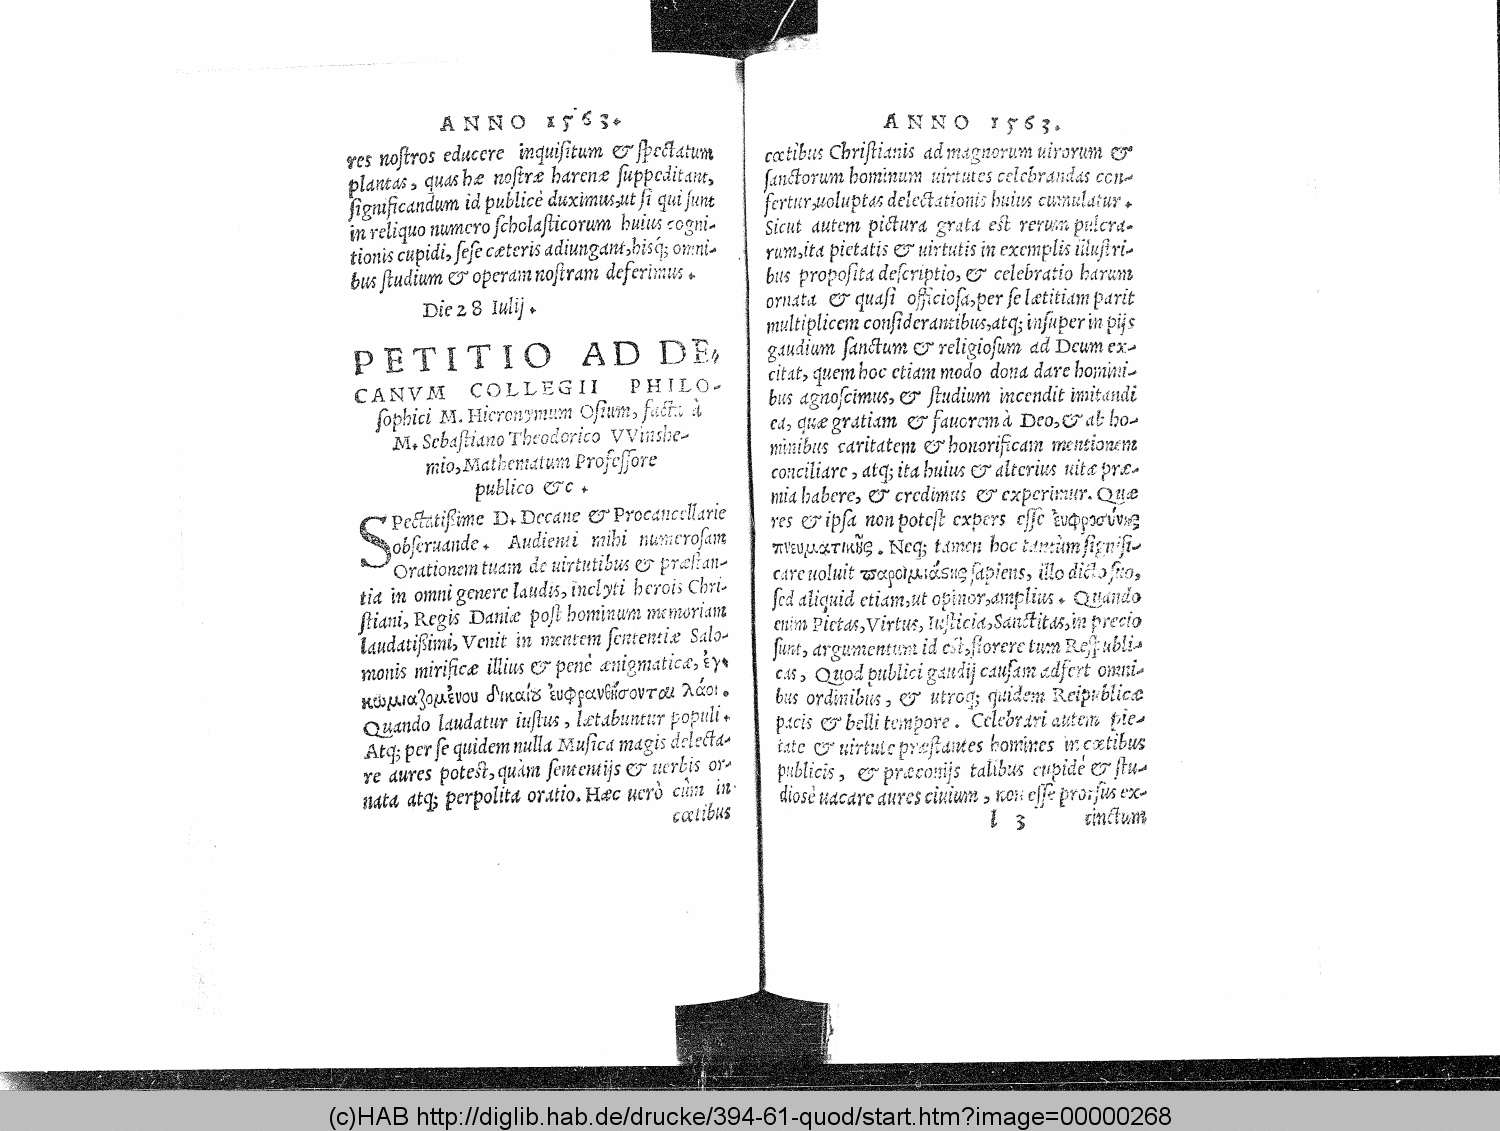 ANNO 1563.
res nostros educere inquisitum & spectatum
plantas, quas hæ nostræ harenæ suppeditant,
significandum id publicè duximus, ut si qui sunt
in reliquo numero scholasticorum huius cogni-
tionis cupidi, sese cæteris adiungant, hisq; omni-
bus studium & operam nostram deferimus.
Die 28 Iulij.
PETITIO AD DE-
CANVM COLLEGII PHILO-
sophici M. Hieronymum Osium, facta à
M. Sebastiano Theodorico VVinshe-
mio, Mathematum Professore
publico &c.
SPectatißime D. Decane & Procancellarie
obseruande. Audienti mihi numerosam
Orationem tuam de uirtutibus & præstan-
tia in omni genere laudis, inclyti herois Chri-
stiani, Regis Daniæ post hominum memoriam
laudatißimi, Venit in mentem sententiæ Salo-
monis mirificæ illius & penè ænigmaticæ, ἐγ-
κωμιαζομένου δικαίου ἐυφρανθήσονται λάοι.
Quando laudatur iustus, lætabuntur populi.
Atq; per se quidem nulla Musica magis delecta-
re aures potest, quàm sententijs & uerbis or-
nata atq; perpolita oratio. Hæc uerò cùm in
cœtibus
ANNO 1563.
cœtibus Christianis ad magnorum uirorum &
sanctorum hominum uirtutes celebrandas con-
fertur, uoluptas delectationis huius cumulatur.
Sicut autem pictura grata est rerum pulcra-
rum, ita pietatis & uirtutis in exemplis illustri-
bus proposita descriptio, & celebratio harum
ornata & quasi officiosa, per se lætitiam parit
multiplicem considerantibus, atq; insuper in pijs
gaudium sanctum & religiosum ad Deum ex-
citat, quem hoc etiam modo dona dare homini-
bus agnoscimus, & studium incendit imitandi
ea, quæ gratiam & fauorem à Deo, & ab ho-
minibus caritatem & honorificam mentionem
conciliare, atq; ita huius & alterius uitæ præ-
mia habere, & credimus & experimur. Quæ
res & ipsa non potest expers esse ἐυφροσύνης
πνευματικῆς. Neq; tamen hoc tantùm signifi-
care uoluit παροιμιάσης sapiens, illo dicto suo,
sed aliquid etiam, ut opinor, amplius. Quando
enim Pietas, Virtus, Iusticia, Sanctitas, in precio
sunt, argumentum id est, florere tum Respubli-
cas, Quod publici gaudij causam adfert omni-
bus ordinibus, & utroq; quidem Reipublicæ
pacis & belli tempore. Celebrari autem pie-
tate & uirtute præstantes homines in cœtibus
publicis, & præconijs talibus cupidè & stu-
diosè uacare aures ciuium, non esse prorsus ex-
l 3 tinctum
(c)HAB http://diglib.hab.de/drucke/394-61-quod/start.htm?image=00000268